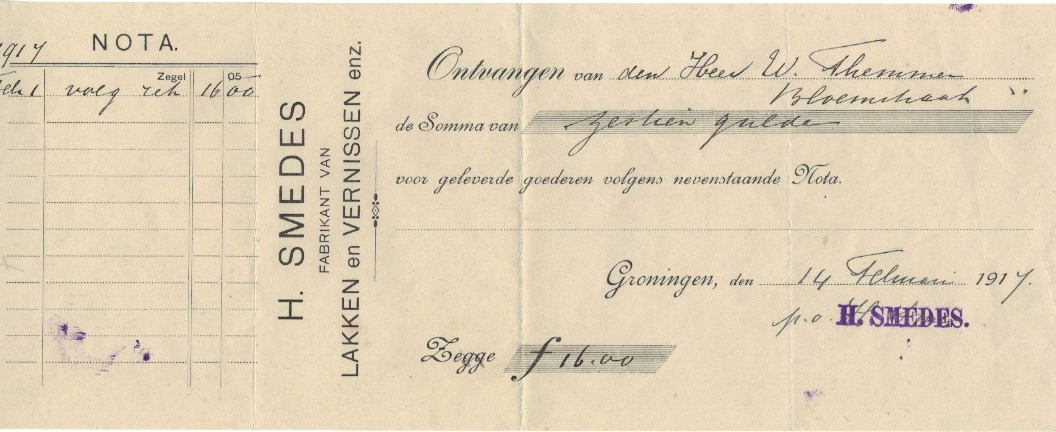 1917 NOTA.
Zegel 05
Feb 1 volg rek 16 00
H. SMEDES
FABRIKANT VAN
LAKKEN en VERNISSEN enz.
Ontvangen van den Heer W. Themmen
Bloemstraat
de Somma van zestien gulde
voor geleverde goederen volgens nevenstaande Nota.
Groningen, den 14 Februari 1917.
p.o. H. SMEDES.
Zegge f 16.00